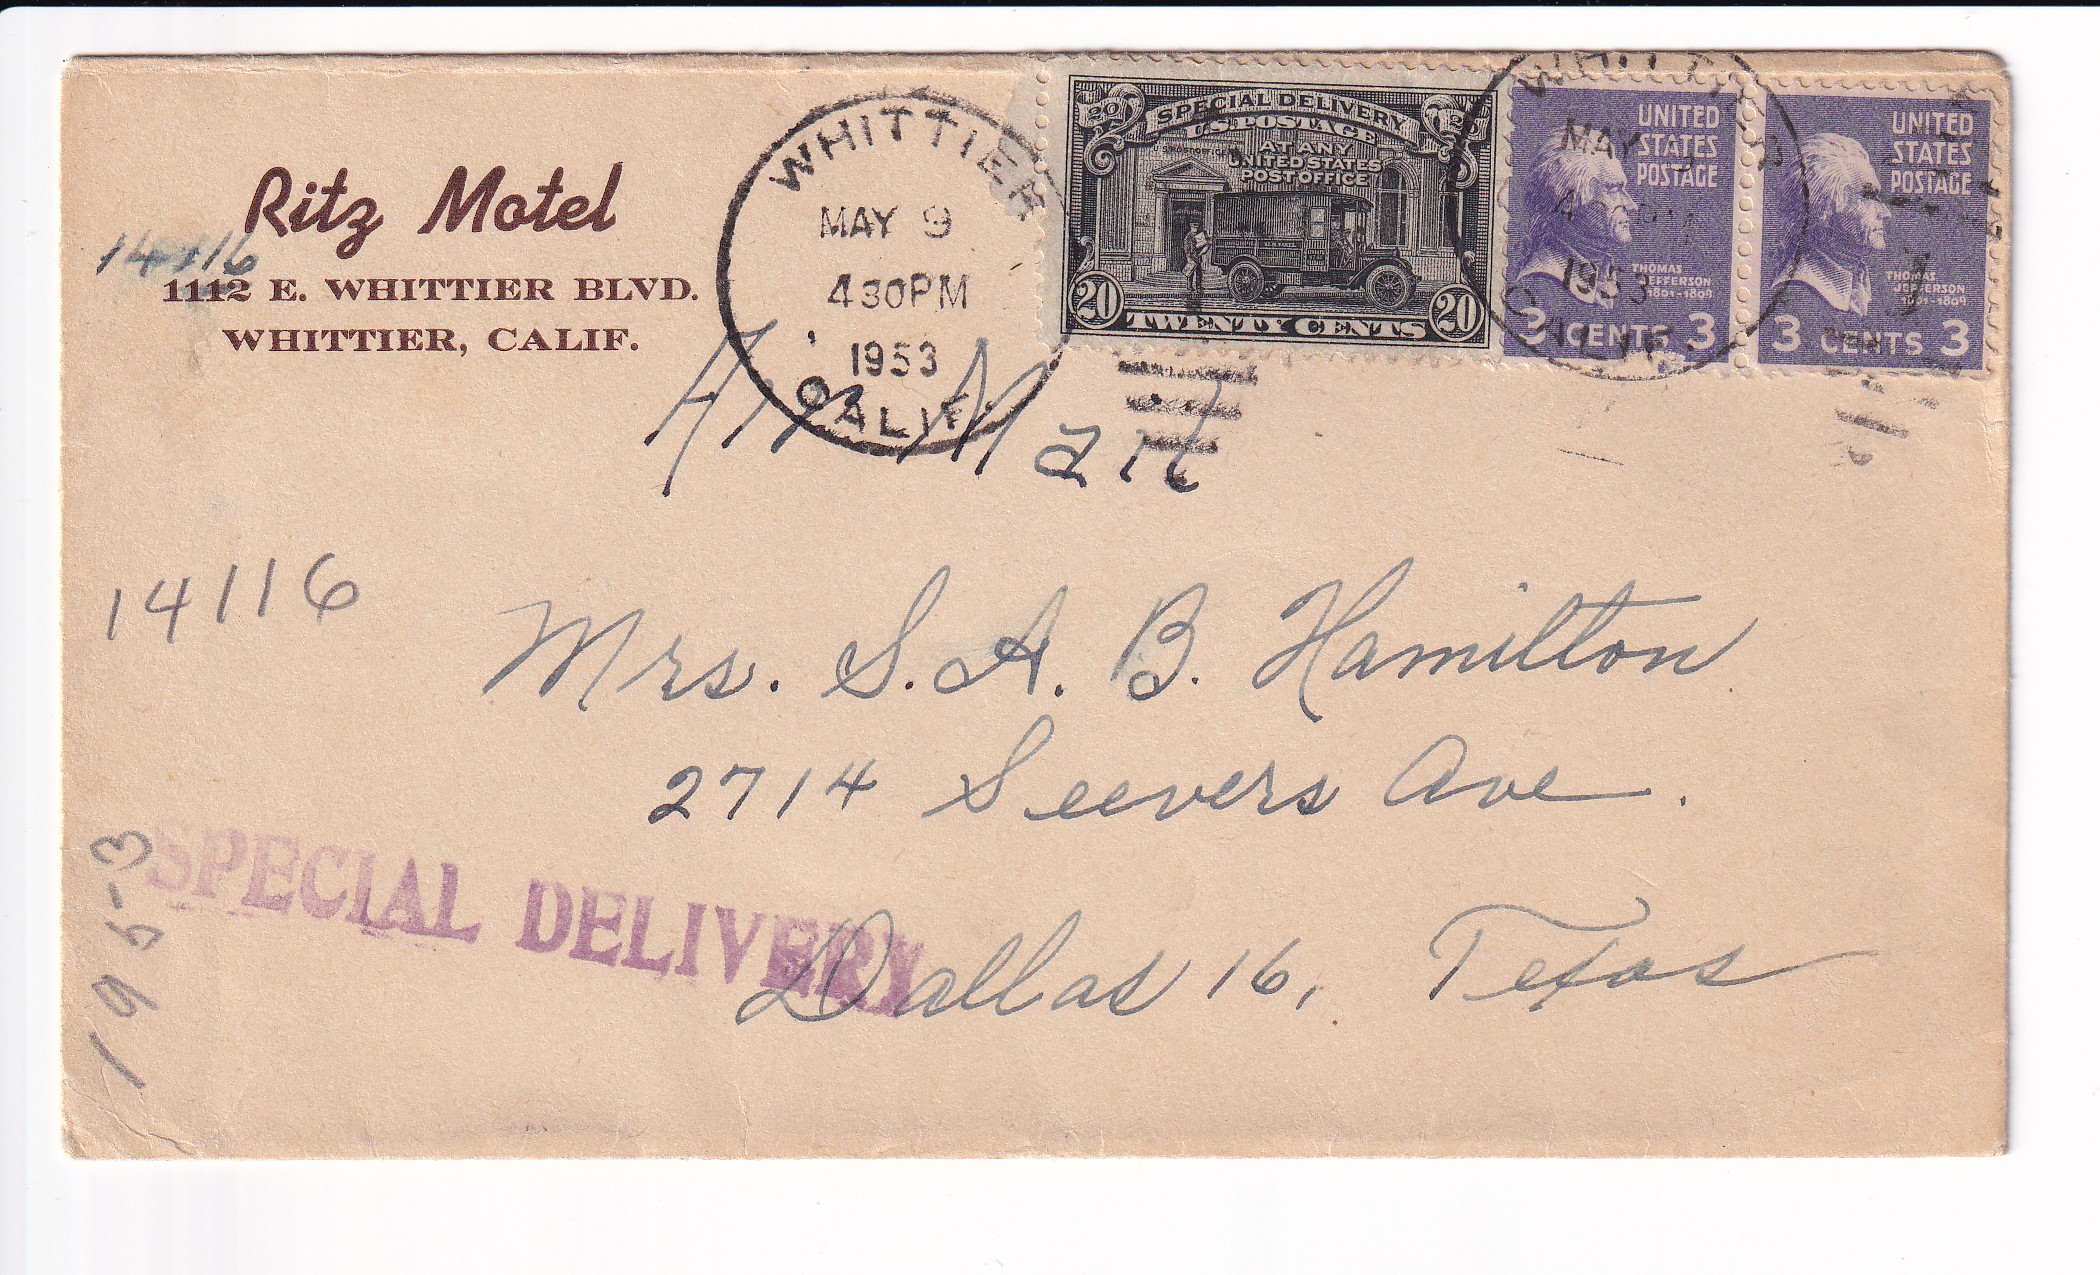 Ritz Motel
14116
1112 E. WHITTIER BLVD.
WHITTIER, CALIF.
WHITTIER
MAY 9
430PM
1953
CALIF.
20 SPECIAL DELIVERY 20
U.S. POSTAGE
AT ANY
UNITED STATES
POST OFFICE
20 TWENTY CENTS 20
WHITTIER
MAY
1953
CALIF.
UNITED
STATES
POSTAGE
THOMAS
JEFFERSON
1801-1809
3 CENTS 3
UNITED
STATES
POSTAGE
THOMAS
JEFFERSON
1801-1809
3 CENTS 3
Air Mail
14116
Mrs. S. A. B. Hamilton
2714 Seevers Ave.
Dallas 16, Texas
SPECIAL DELIVERY
1953